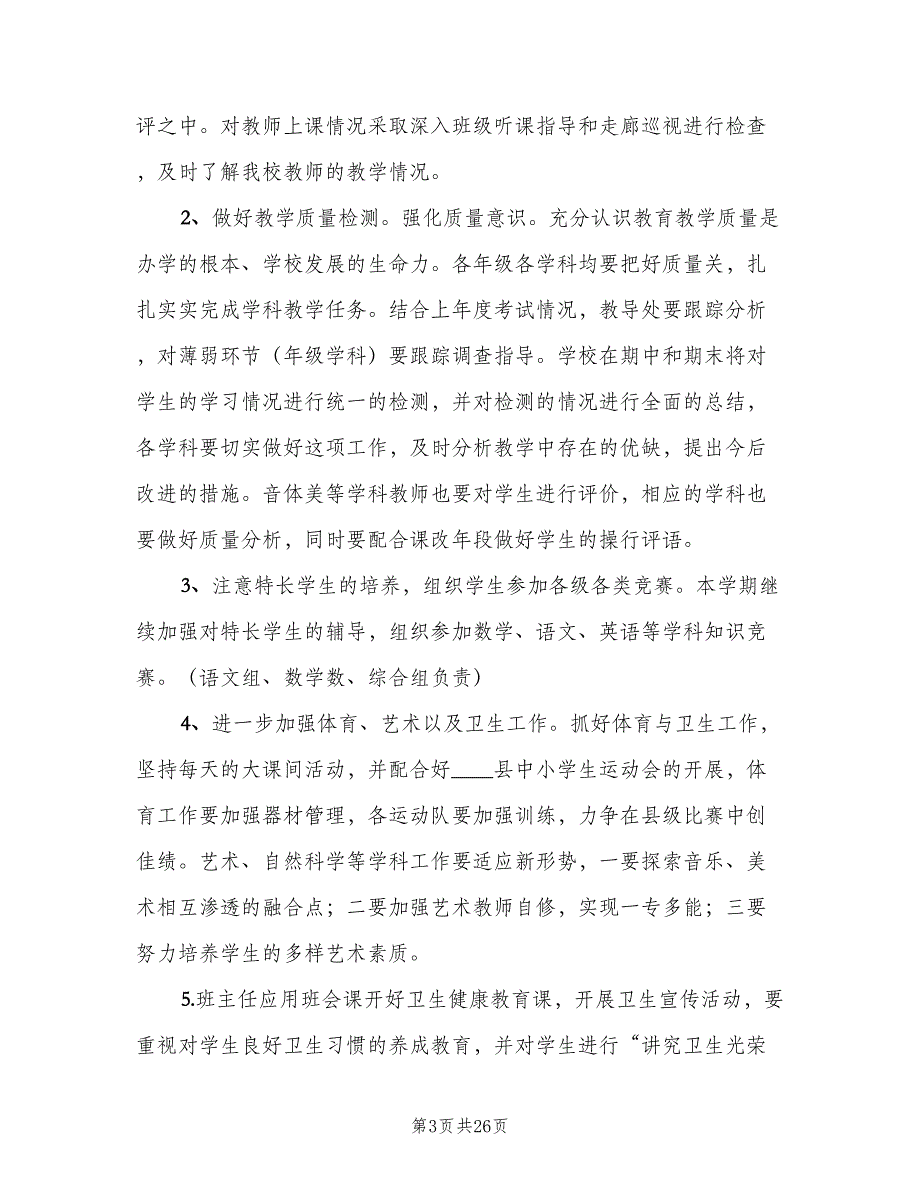 评之中。对教师上课情况采取深入班级听课指导和走廊巡视进行检查
，及时了解我校教师的教学情况。
2、做好教学质量检测。强化质量意识。充分认识教育教学质量是
办学的根本、学校发展的生命力。各年级各学科均要把好质量关，扎
扎实实完成学科教学任务。结合上年度考试情况，教导处要跟踪分析
，对薄弱环节（年级学科）要跟踪调查指导。学校在期中和期末将对
学生的学习情况进行统一的检测，并对检测的情况进行全面的总结，
各学科要切实做好这项工作，及时分析教学中存在的优缺，提出今后
改进的措施。音体美等学科教师也要对学生进行评价，相应的学科也
要做好质量分析，同时要配合课改年段做好学生的操行评语。
3、注意特长学生的培养，组织学生参加各级各类竞赛。本学期继
续加强对特长学生的辅导，组织参加数学、语文、英语等学科知识竞
赛。（语文组、数学数、综合组负责）
4、进一步加强体育、艺术以及卫生工作。抓好体育与卫生工作，
坚持每天的大课间活动，并配合好____县中小学生运动会的开展，体
育工作要加强器材管理，各运动队要加强训练，力争在县级比赛中创
佳绩。艺术、自然科学等学科工作要适应新形势，一要探索音乐、美
术相互渗透的融合点；二要加强艺术教师自修，实现一专多能；三要
努力培养学生的多样艺术素质。
5.班主任应用班会课开好卫生健康教育课，开展卫生宣传活动，要
重视对学生良好卫生习惯的养成教育，并对学生进行“讲究卫生光荣
第3页共26页